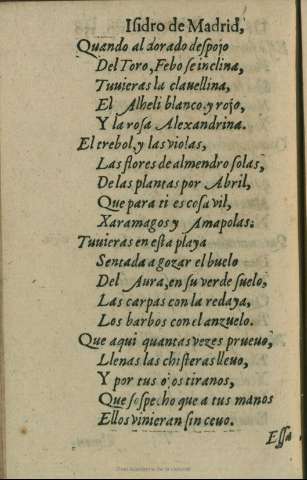 Isidro de Madrid,
Quando al dorado despojo
Del Toro, Febo se inclina,
Tuuieras la clauellina,
El Alheli blanco, y rojo,
Y la rosa Alexandrina.
El trebol, y las violas,
Las flores de almendro solas,
De las plantas por Abril,
Que para ti es cosa vil,
Xaramagos y Amapolas:
Tuuieras en esta playa
Sentada a gozar el buelo
Del Aura, en su verde suelo,
Las carpas con la redaya,
Los barbos con el anzuelo.
Que aqui quantas vezes prueuo,
Llenas las chisteras lleuo,
Y por tus ojos tiranos,
Que sospecho que a tus manos
Ellos vinieran sin ceuo.
Essa